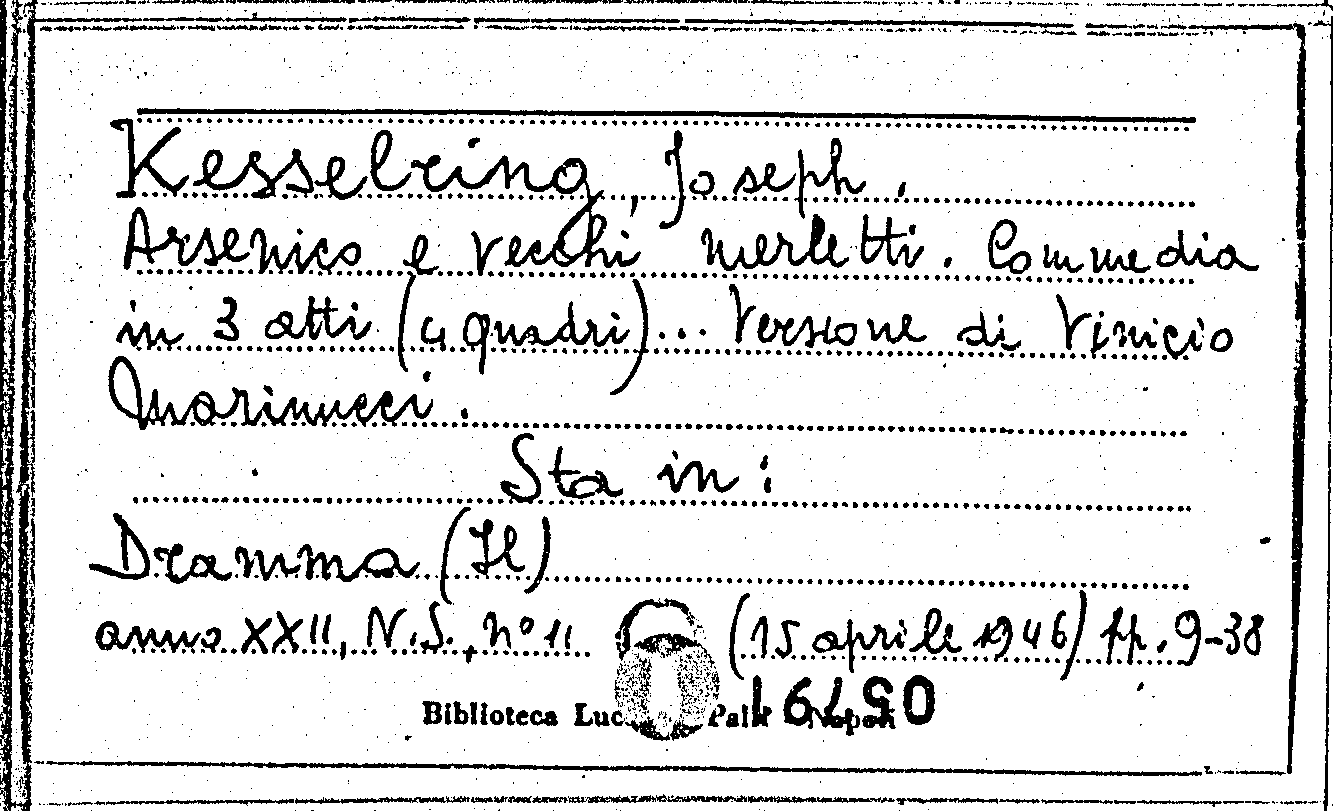 Kesselring, Joseph.
Arsenico e vecchi merletti. Commedia
in 3 atti (4 quadri)... Versione di Vinicio
Marinucci.
Sta in:
Dramma (Il)
anno XXII, N.S., n° 11 (15 aprile 1946) pp. 9-38
Biblioteca